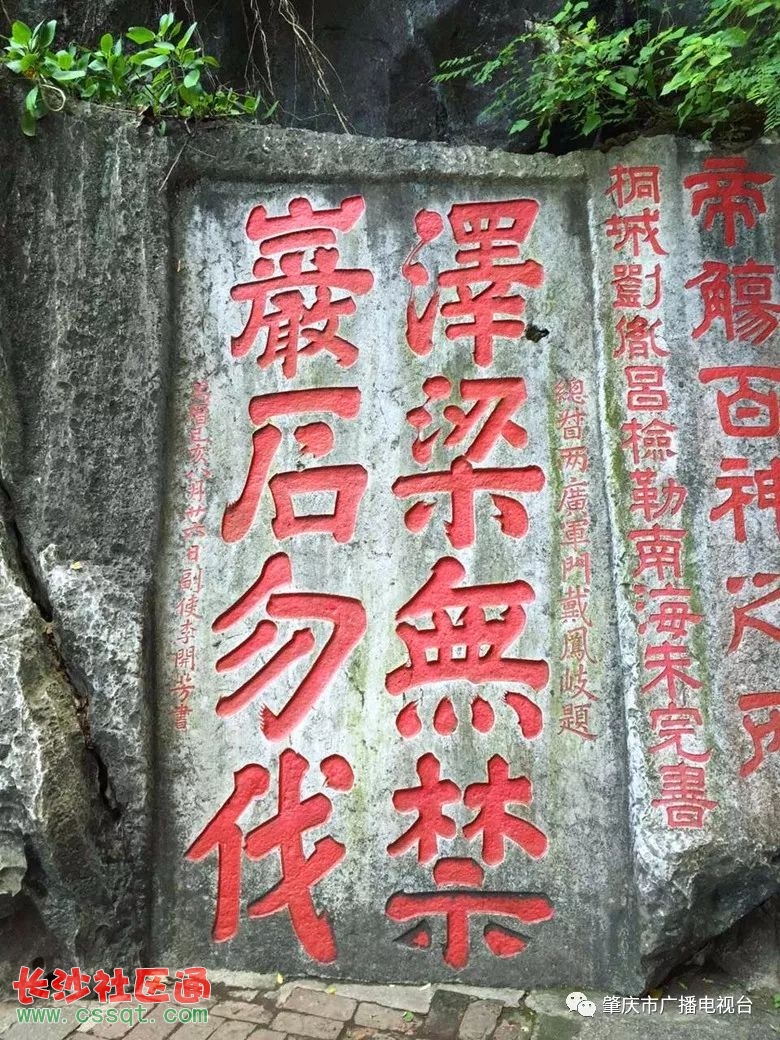 帝觴百神之所
桐城劉胤昌檢勒南海朱完書
總督两廣軍門戴鳳岐題
澤梁無禁
巖石勿伐
亥八月廿六日副使李開芳書
长沙社区通
www.cssqt.com
肇庆市广播电视台